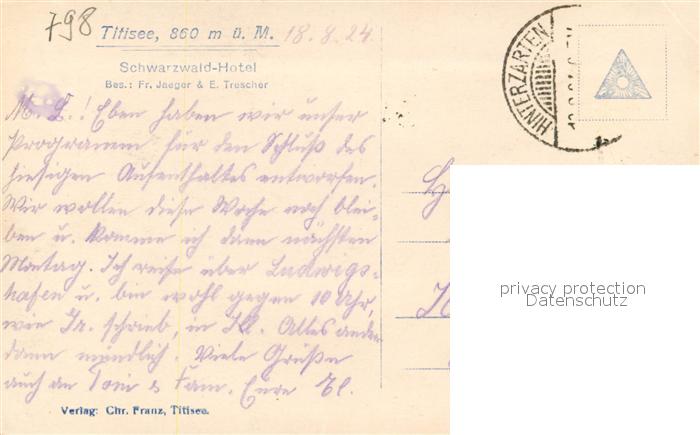 798
Titisee, 860 m ü. M. 18.8.24
Schwarzwald-Hotel
Bes.: Fr. Jaeger & E. Trescher
HINTERZARTEN
M. L.! Eben haben wir unser
Programm für den Schluß des
hiesigen Aufenthaltes entworfen.
Wir wollen diese Woche noch blei-
ben u. komme ich dann nächsten
Montag. Ich reise über Ludwigs-
hafen u. bin wohl gegen 10 Uhr,
wie Ir. schrieb, in Kl. Alles andere
dann mündlich. Viele Grüße
auch an Toni & Fam. Eure El.
Verlag: Chr. Franz, Titisee.
privacy protection
Datenschutz